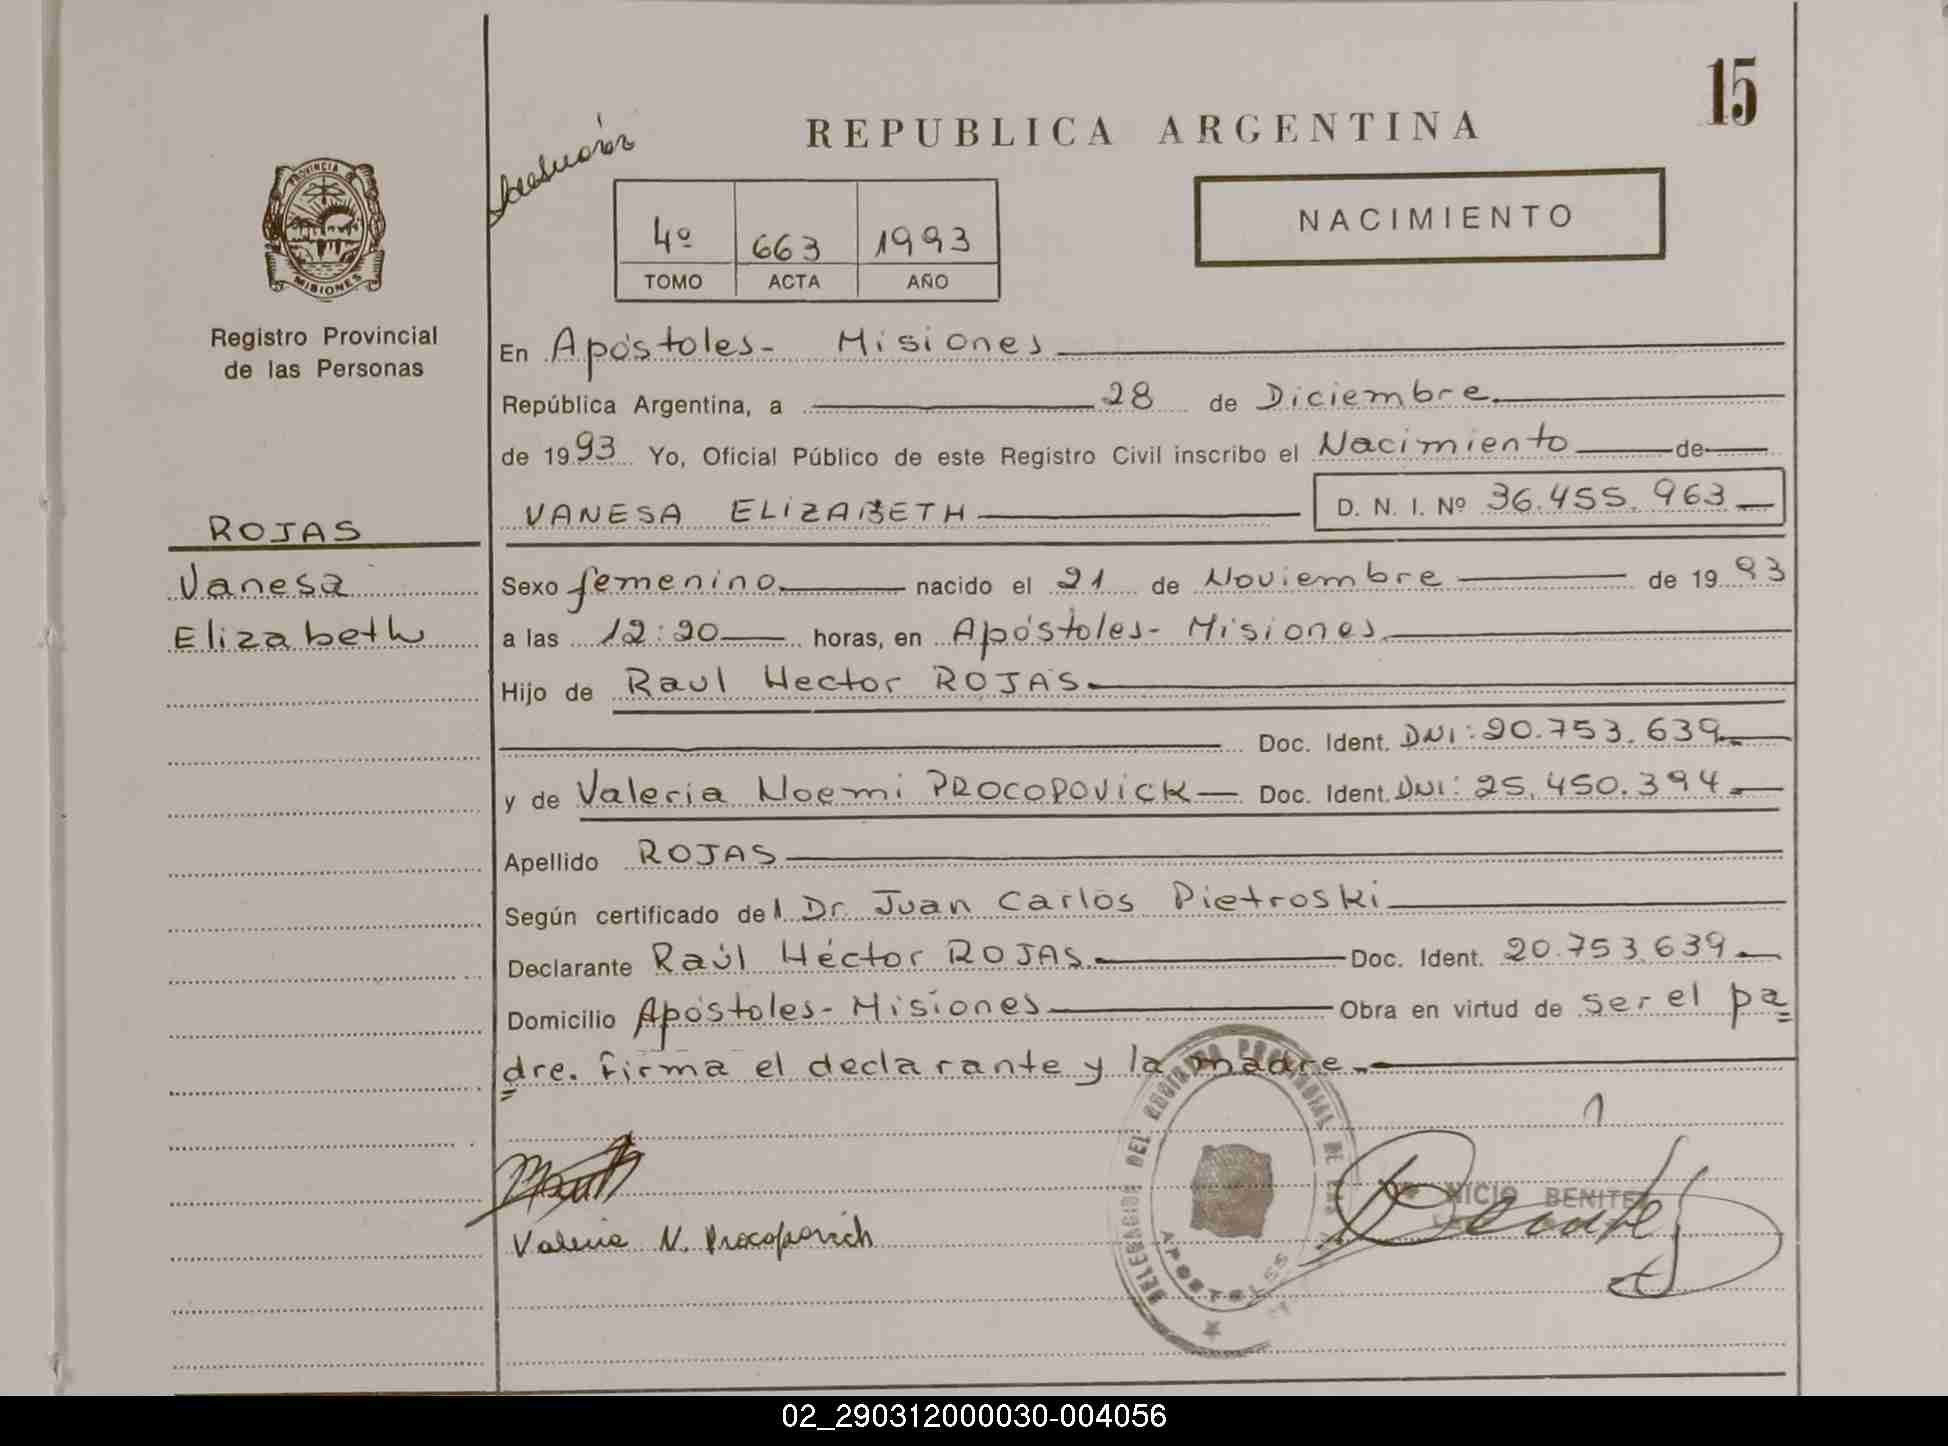 15
REPUBLICA ARGENTINA
NACIMIENTO
4º 663 1993
TOMO ACTA AÑO
PROVINCIA
MISIONES
Registro Provincial
de las Personas
ROJAS
Vanesa
Elizabeth
En Apóstoles- Misiones
República Argentina, a 28 de Diciembre
de 1993 Yo, Oficial Público de este Registro Civil inscribo el Nacimiento de
VANESA ELIZABETH D. N. I. Nº 36.455.963
Sexo femenino nacido el 21 de Noviembre de 1993
a las 12:20 horas, en Apóstoles- Misiones
Hijo de Raul Hector ROJAS
Doc. Ident. DNI: 20.753.639
y de Valeria Noemi PROCOPOVICK Doc. Ident. DNI: 25.450.394
Apellido ROJAS
Según certificado del Dr. Juan Carlos Pietroski
Declarante Raúl Héctor ROJAS Doc. Ident. 20.753.639
Domicilio Apóstoles- Misiones Obra en virtud de ser el pa
dre. Firma el declarante y la madre.-
Valeria N. Procopovich
DELEGACION DEL REGISTRO PROVINCIAL DE LAS
APOSTOLES
NICIO BENITE
02_290312000030-004056